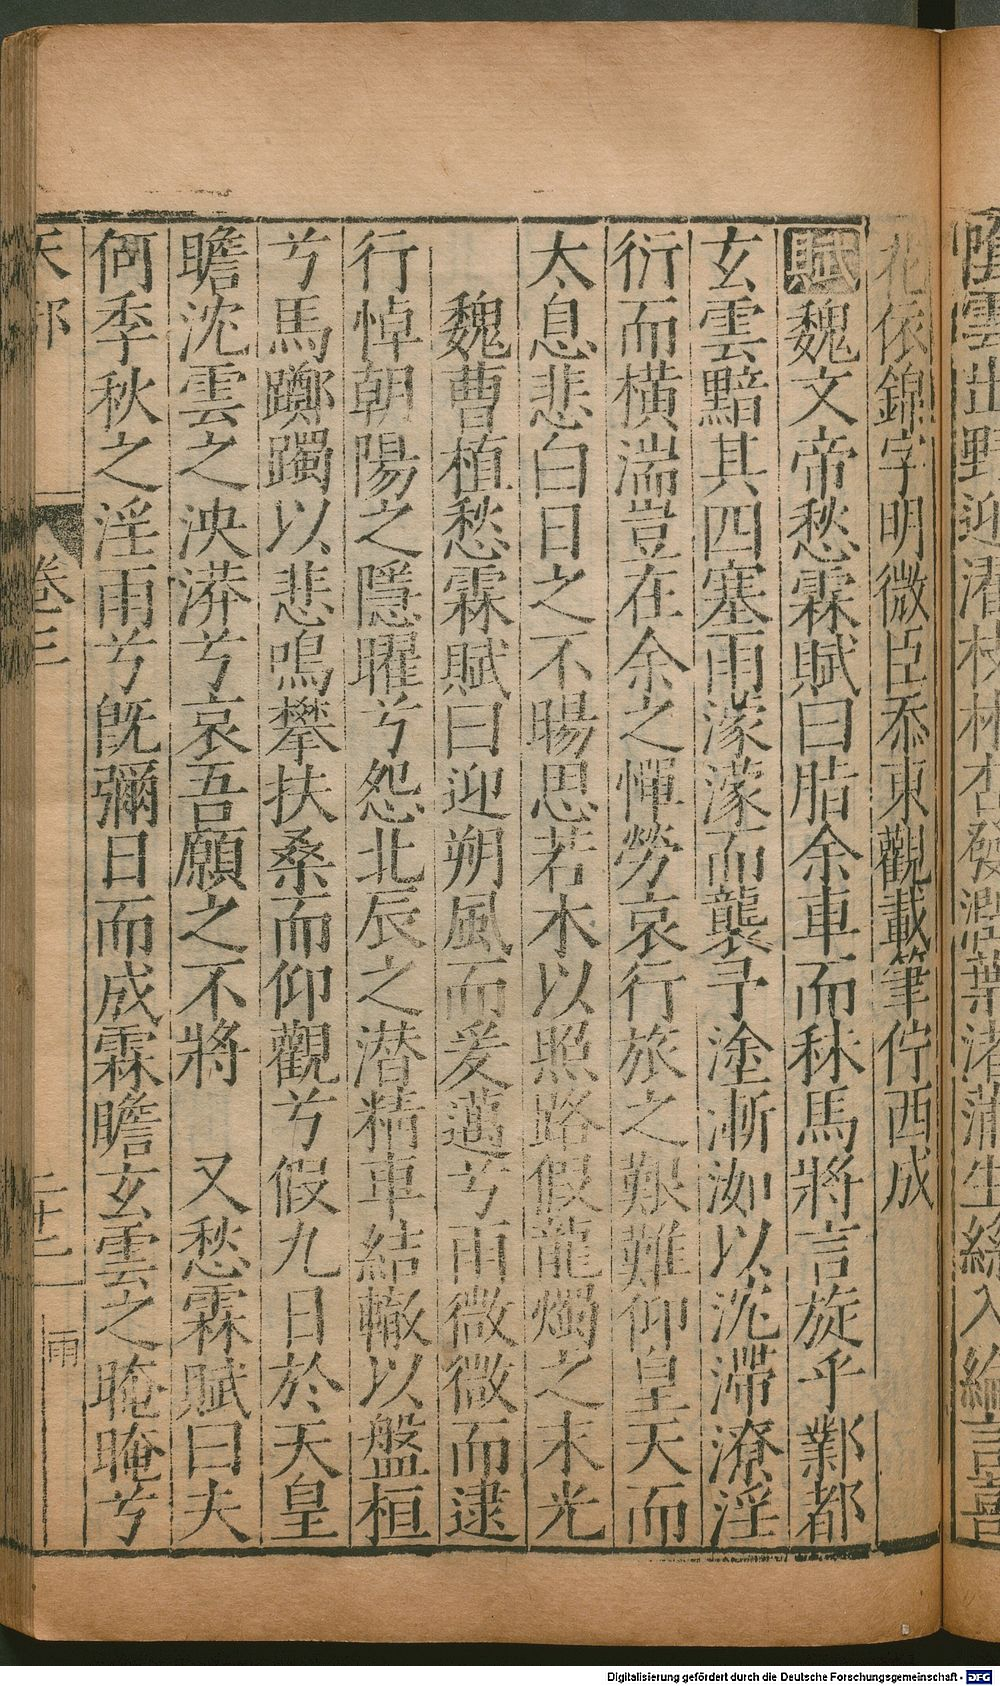 隂雲出野迎濳枝林杏發潤葉渚蒲生絲入綸言喜
花依錦字明微臣忝東觀載筆佇西成
賦魏文帝愁霖賦曰脂余車而秣馬將言旋乎鄴都
玄雲黯其四塞雨濛濛而襲予塗漸洳以沈滯潦淫
衍而橫湍豈在余之憚勞哀行旅之艱難仰皇天而
太息悲白日之不暘思若木以照路假龍燭之末光
魏曹植愁霖賦曰迎朔風而爰邁兮雨微微而逮
行悼朝陽之隱曜兮怨北辰之濳精車結轍以盤桓
兮馬躑躅以悲鳴攀扶桑而仰觀兮假九日於天皇
瞻沈雲之泱漭兮哀吾願之不將 又愁霖賦曰夫
何季秋之淫雨兮旣彌日而成霖瞻玄雲之晻晻兮
天部 卷三 二十二 雨
Digitalisierung gefördert durch die Deutsche Forschungsgemeinschaft - DFG